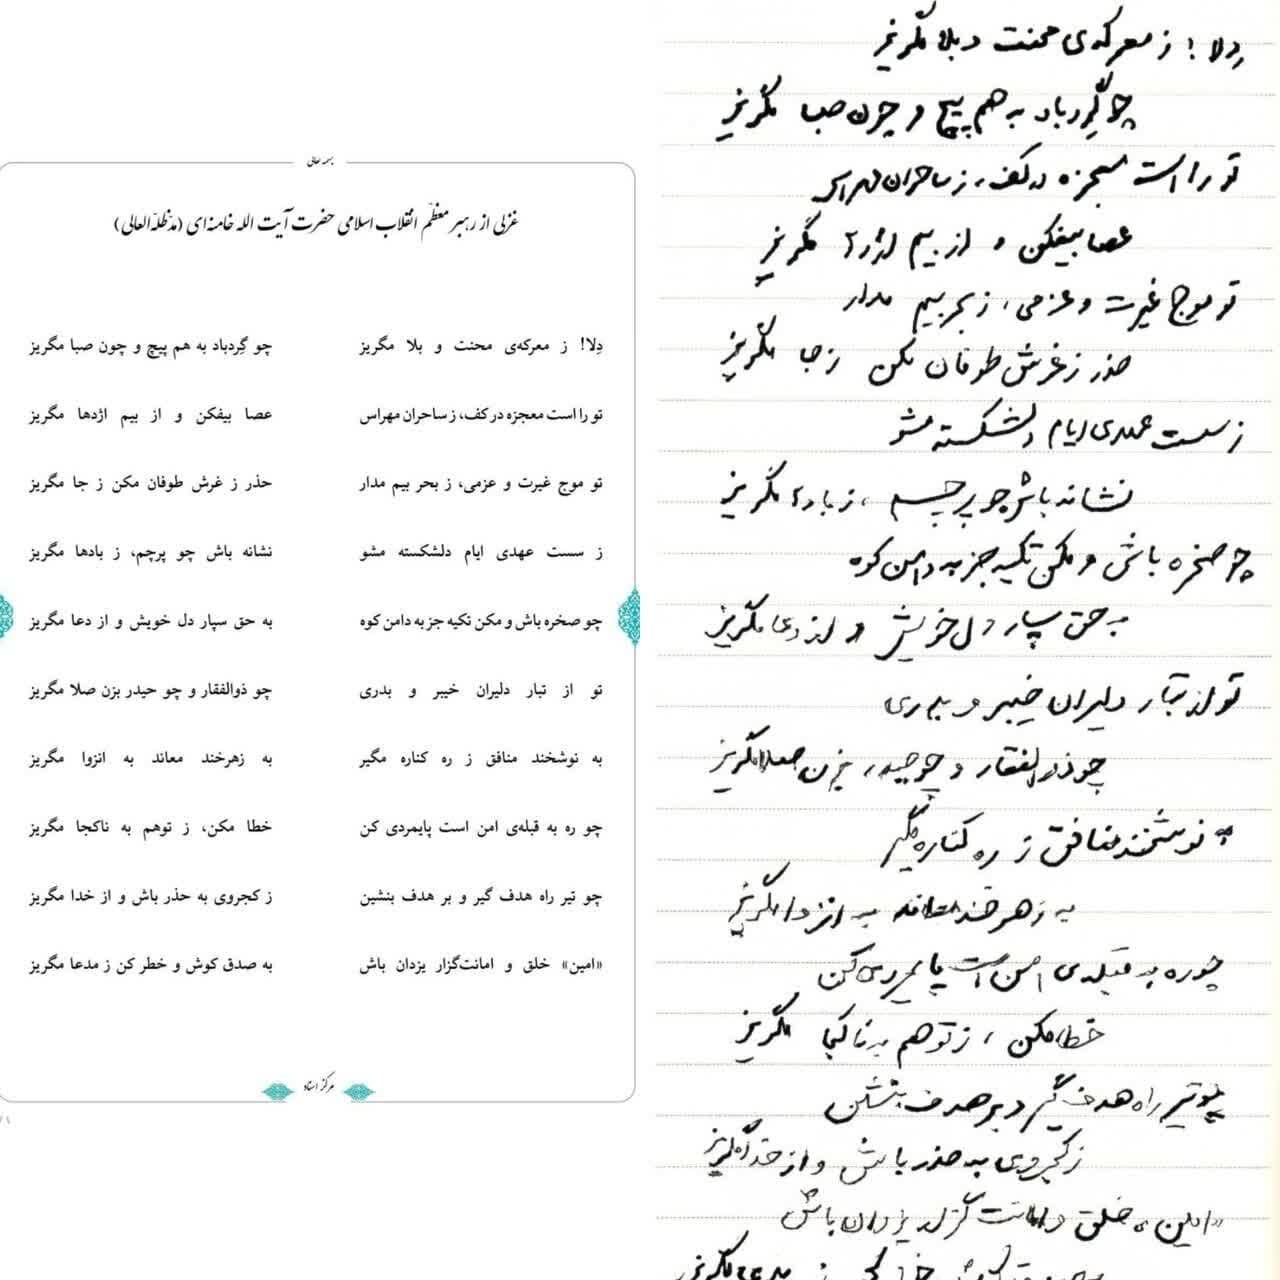 بسمه تعالی
غزلی از رهبر معظّم انقلاب اسلامی حضرت آیت الله خامنه‌ای (مدّظلّه العالی)
دِلا! ز معرکه‌ی محنت و بلا مگریز چو گِردباد به هم پیچ و چون صبا مگریز
تو را است معجزه در کف، ز ساحران مهراس عصا بیفکن و از بیم اژدها مگریز
تو موج غیرت و عزمی، ز بحر بیم مدار حذر ز غرش طوفان مکن ز جا مگریز
ز سست عهدی ایام دلشکسته مشو نشانه باش چو پرچم، ز بادها مگریز
چو صخره باش و مکن تکیه جز به دامن کوه به حق سپار دل خویش و از دعا مگریز
تو از تبار دلیران خیبر و بدری چو ذوالفقار و چو حیدر بزن صلا مگریز
به نوشخند منافق ز ره کناره مگیر به زهرخند معاند به انزوا مگریز
چو ره به قبله‌ی امن است پایمردی کن خطا مکن، ز توهم به ناکجا مگریز
چو تیر راه هدف گیر و بر هدف بنشین ز کجروی به حذر باش و از خدا مگریز
«امین» خلق و امانت‌گزار یزدان باش به صدق کوش و خطر کن ز مدعا مگریز
مرکز اسناد
دِلا! ز معرکه‌ی محنت و بلا مگریز
چو گِردباد به هم پیچ و چون صبا مگریز
تو را است معجزه در کف، ز ساحران مهراس
عصا بیفکن و از بیم اژدها مگریز
تو موج غیرت و عزمی، ز بحر بیم مدار
حذر ز غرش طوفان مکن ز جا مگریز
ز سست عهدی ایام دلشکسته مشو
نشانه باش چو پرچم، ز بادها مگریز
چو صخره باش و مکن تکیه جز به دامن کوه
به حق سپار دل خویش و از دعا مگریز
تو از تبار دلیران خیبر و بدری
چو ذوالفقار و چو حیدر، بزن صلا مگریز
به نوشخند منافق ز ره کناره مگیر
به زهرخند معاند به انزوا مگریز
چو ره به قبله‌ی امن است پایمردی کن
خطا مکن، ز توهم به ناکجا مگریز
چو تیر راه هدف گیر و بر هدف بنشین
ز کجروی به حذر باش و از خدا مگریز
«امین» خلق و امانت گزار یزدان باش
مگریز